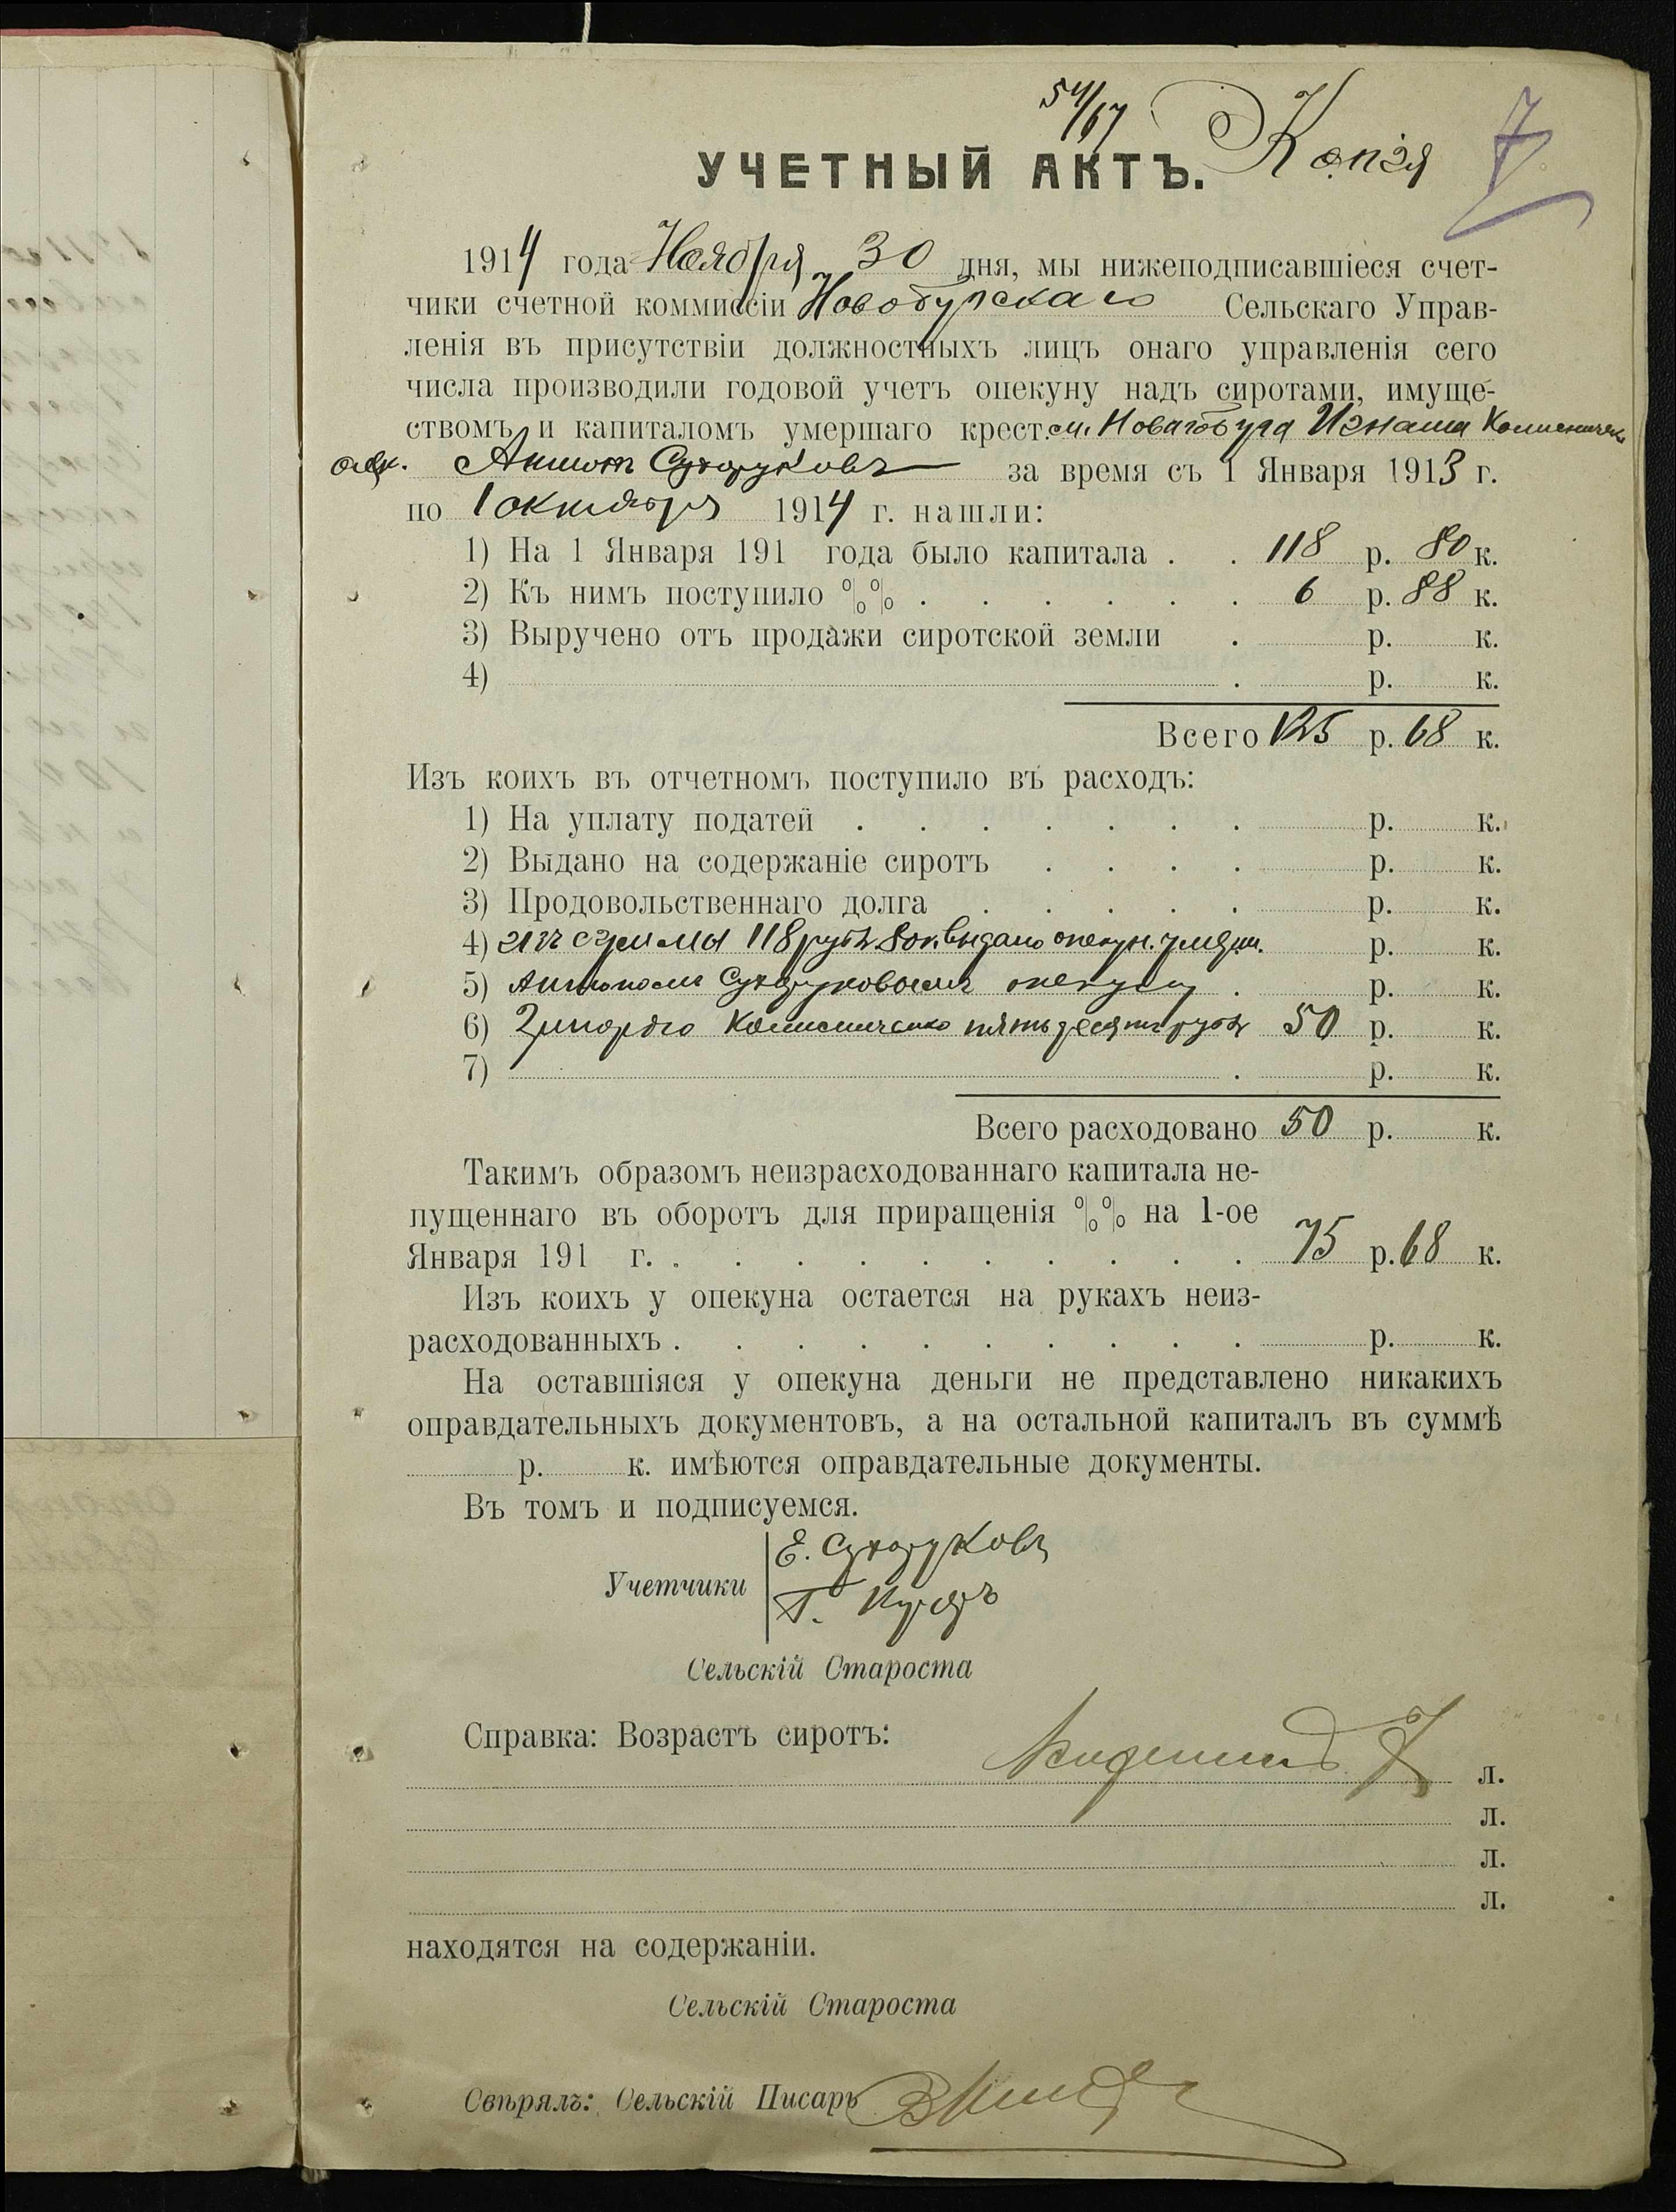 54/67 Копія 7
УЧЕТНЫЙ АКТЪ.
1914 года Ноября 30 дня, мы нижеподписавшіеся счет-
чики счетной коммиссіи Новобугскаго Сельскаго Управ-
ленія въ присутствіи должностныхъ лицъ онаго управленія сего
числа производили годовой учетъ опекуну надъ сиротами, имуще-
ствомъ и капиталомъ умершаго крест. м. Новагобуга Игната
опек. Сухоруковъ за время съ 1 Января 1913 г.
по 1 октября 1914 г. нашли:
1) На 1 Января 191 года было капитала . . 118 р. 80 к.
2) Къ нимъ поступило %% . . . . . . 6 р. 88 к.
3) Выручено отъ продажи сиротской земли . р. к.
4) . р. к.
Всего 125 р. 68 к.
Изъ коихъ въ отчетномъ поступило въ расходъ:
1) На уплату податей . . . . . . . р. к.
2) Выдано на содержаніе сиротъ . . . . р. к.
3) Продовольственнаго долга . . . . . р. к.
4) изъ суммы 118 руб. 80 к. выдано опекун. р. к.
5) Сухоруковымъ опекуну . р. к.
6) пятьдесятъ руб. 50 р. к.
7) . р. к.
Всего расходовано 50 р. к.
Такимъ образомъ неизрасходованнаго капитала не-
пущеннаго въ оборотъ для приращенія %% на 1-ое
Января 191 г. . . . . . . . . . . 75 р. 68 к.
Изъ коихъ у опекуна остается на рукахъ неиз-
расходованныхъ . . . . . . . . . . р. к.
На оставшіяся у опекуна деньги не представлено никакихъ
оправдательныхъ документовъ, а на остальной капиталъ въ суммѣ
р. к. имѣются оправдательные документы.
Въ томъ и подписуемся.
Е. Сухоруковъ
Учетчики
Г.
Сельскій Староста
Справка: Возрастъ сиротъ:
л.
л.
л.
л.
находятся на содержаніи.
Сельскій Староста
Свѣрялъ: Сельскій Писарь